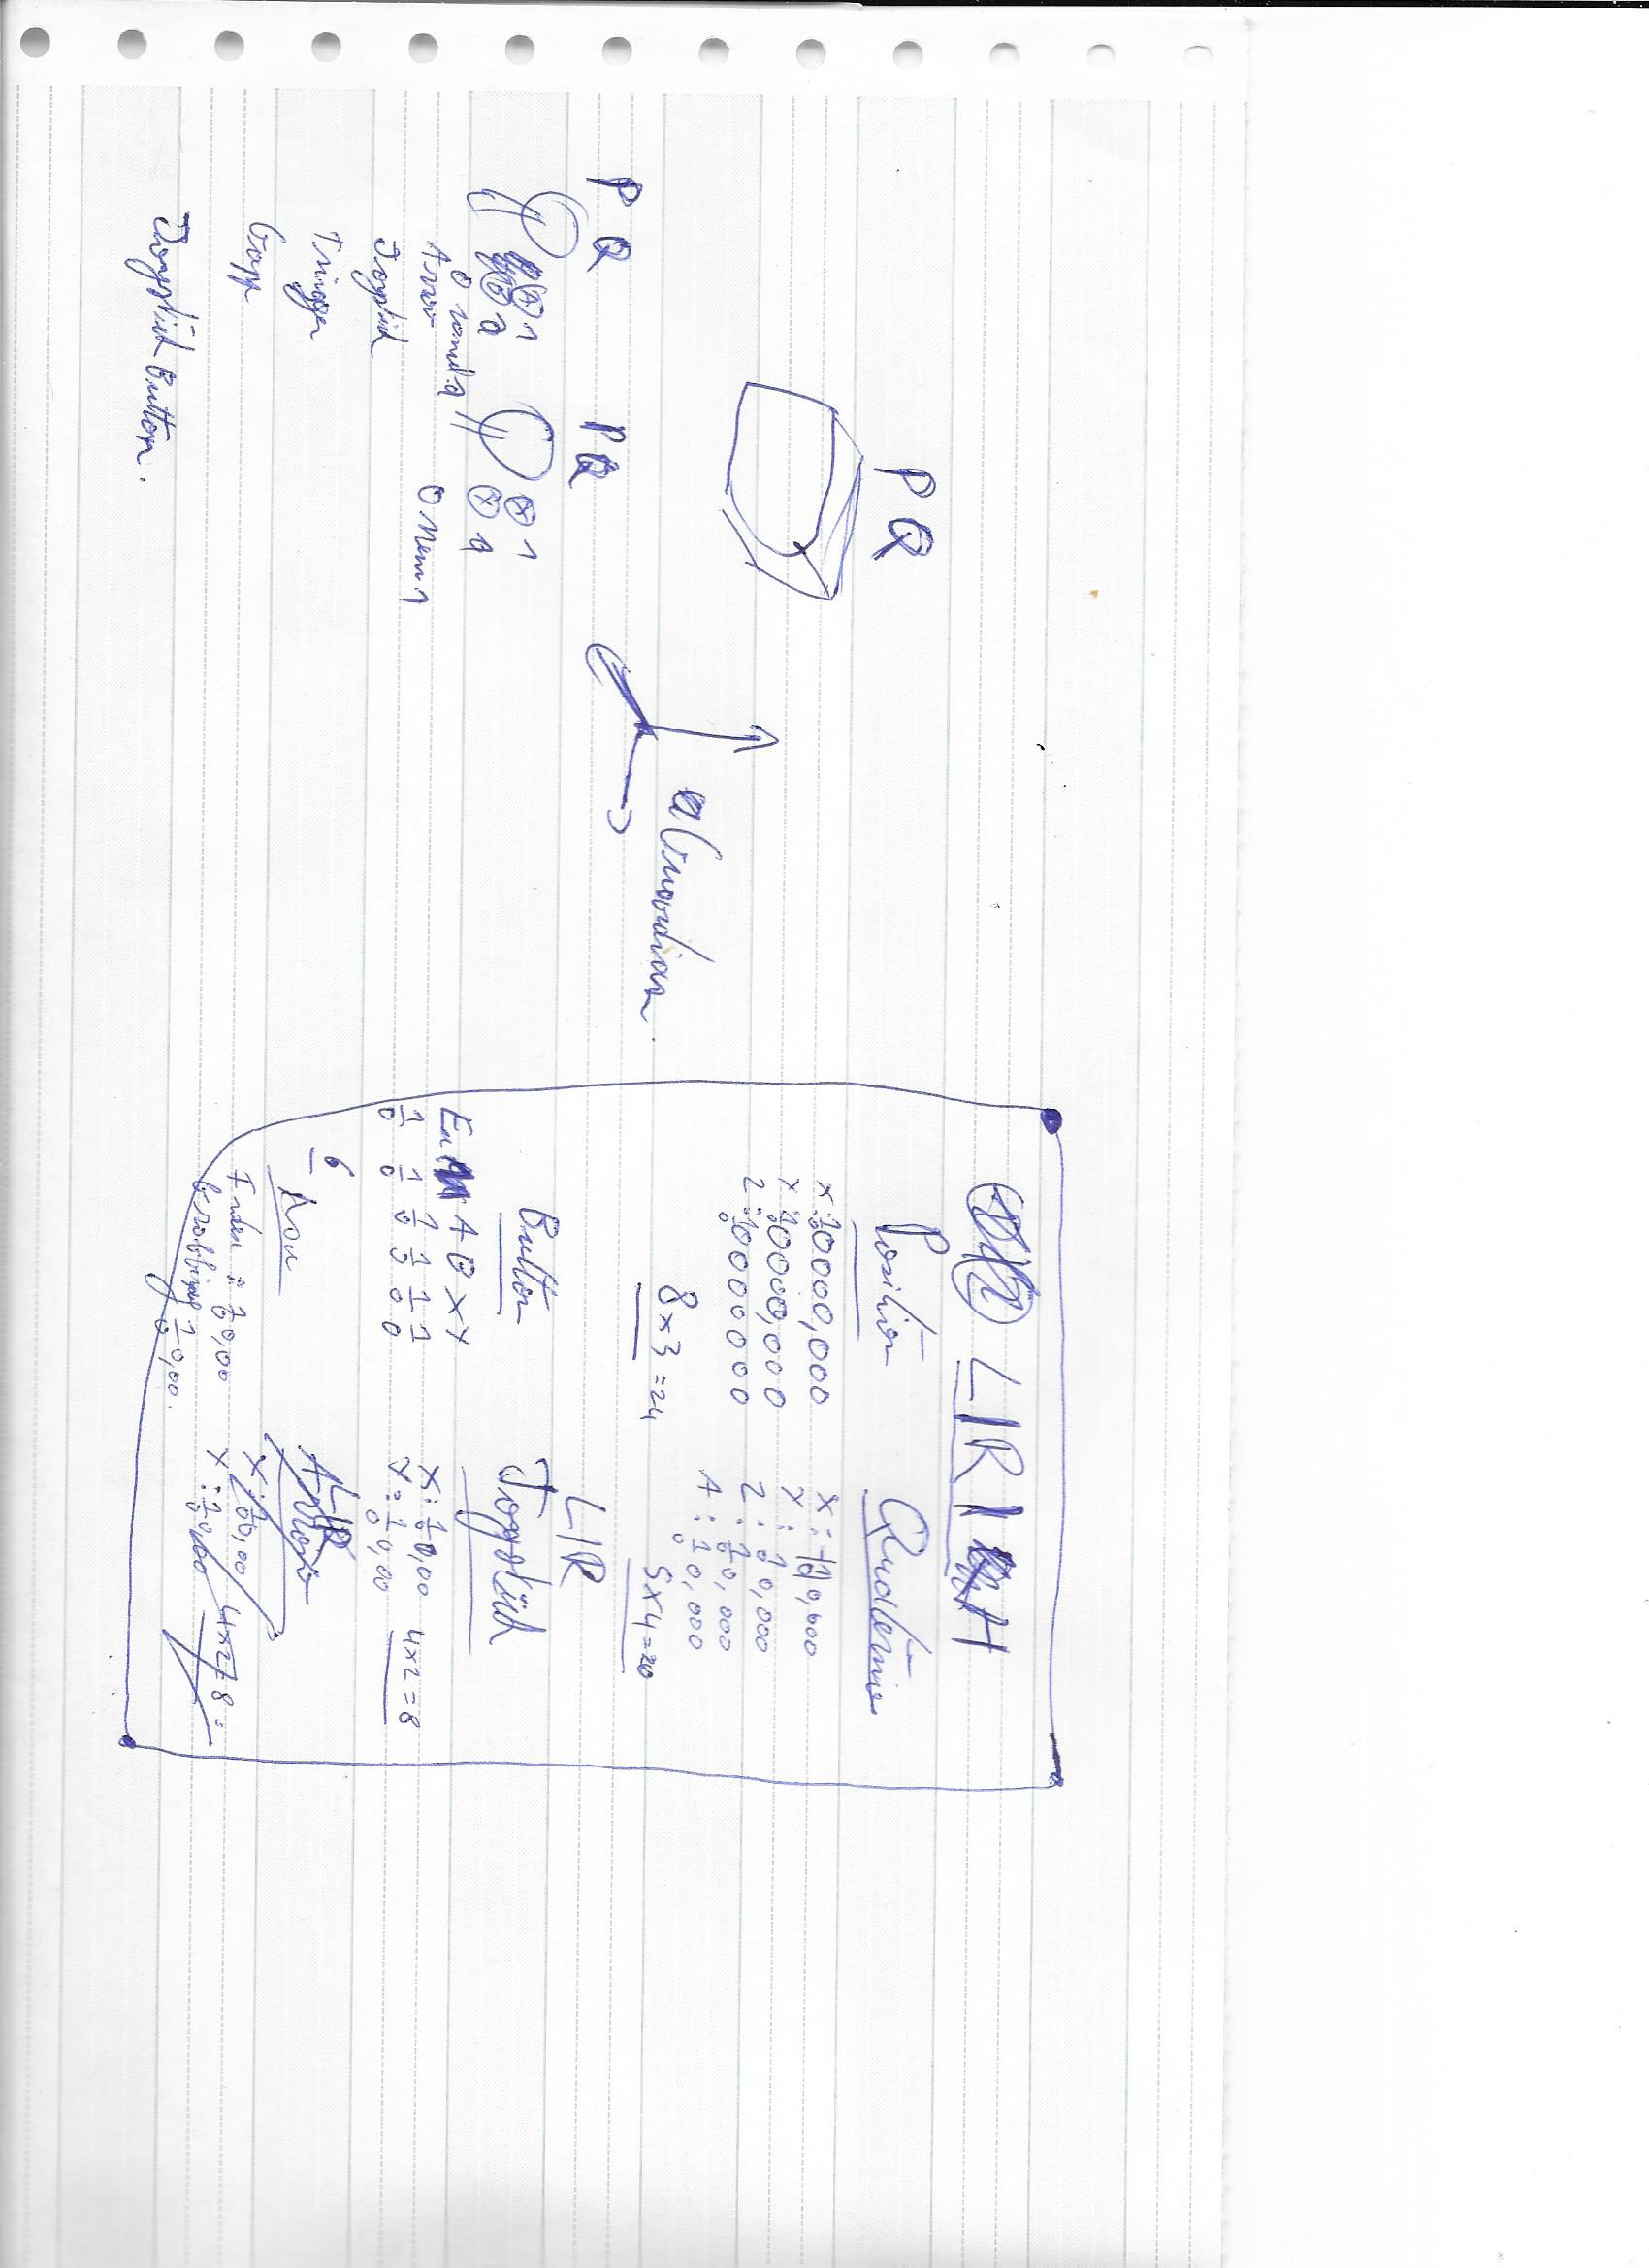 P Q
a Guardian.
P Q
P Q
A 1
2
Arrow
Joystick
Trigger
Joystick Button.
X 1
Y 2
O Menu 1
L/R/H
Position
X: 1/0 0000,000
Y: 1/0 0000,000
Z: 1/0 0000000
8x3=24
Quaternio
X: 0,000
Y: 1/0 0,000
Z: 1/0 0,000
A: 1/0 0,000
5x4=20
Button
A B X Y
1/0 1/0 1/0 1/0 1/0 1/0
6
L/R
Joystick
X: 1/0 0,00
Y: 1/0 0,00
4x2=8
Axe
Index: 1/0 0,00
Grabbing 1/0 0,00.
L/R
Arrow
X: 1/0 0,00
Y: 1/0 0,00
4x2=8